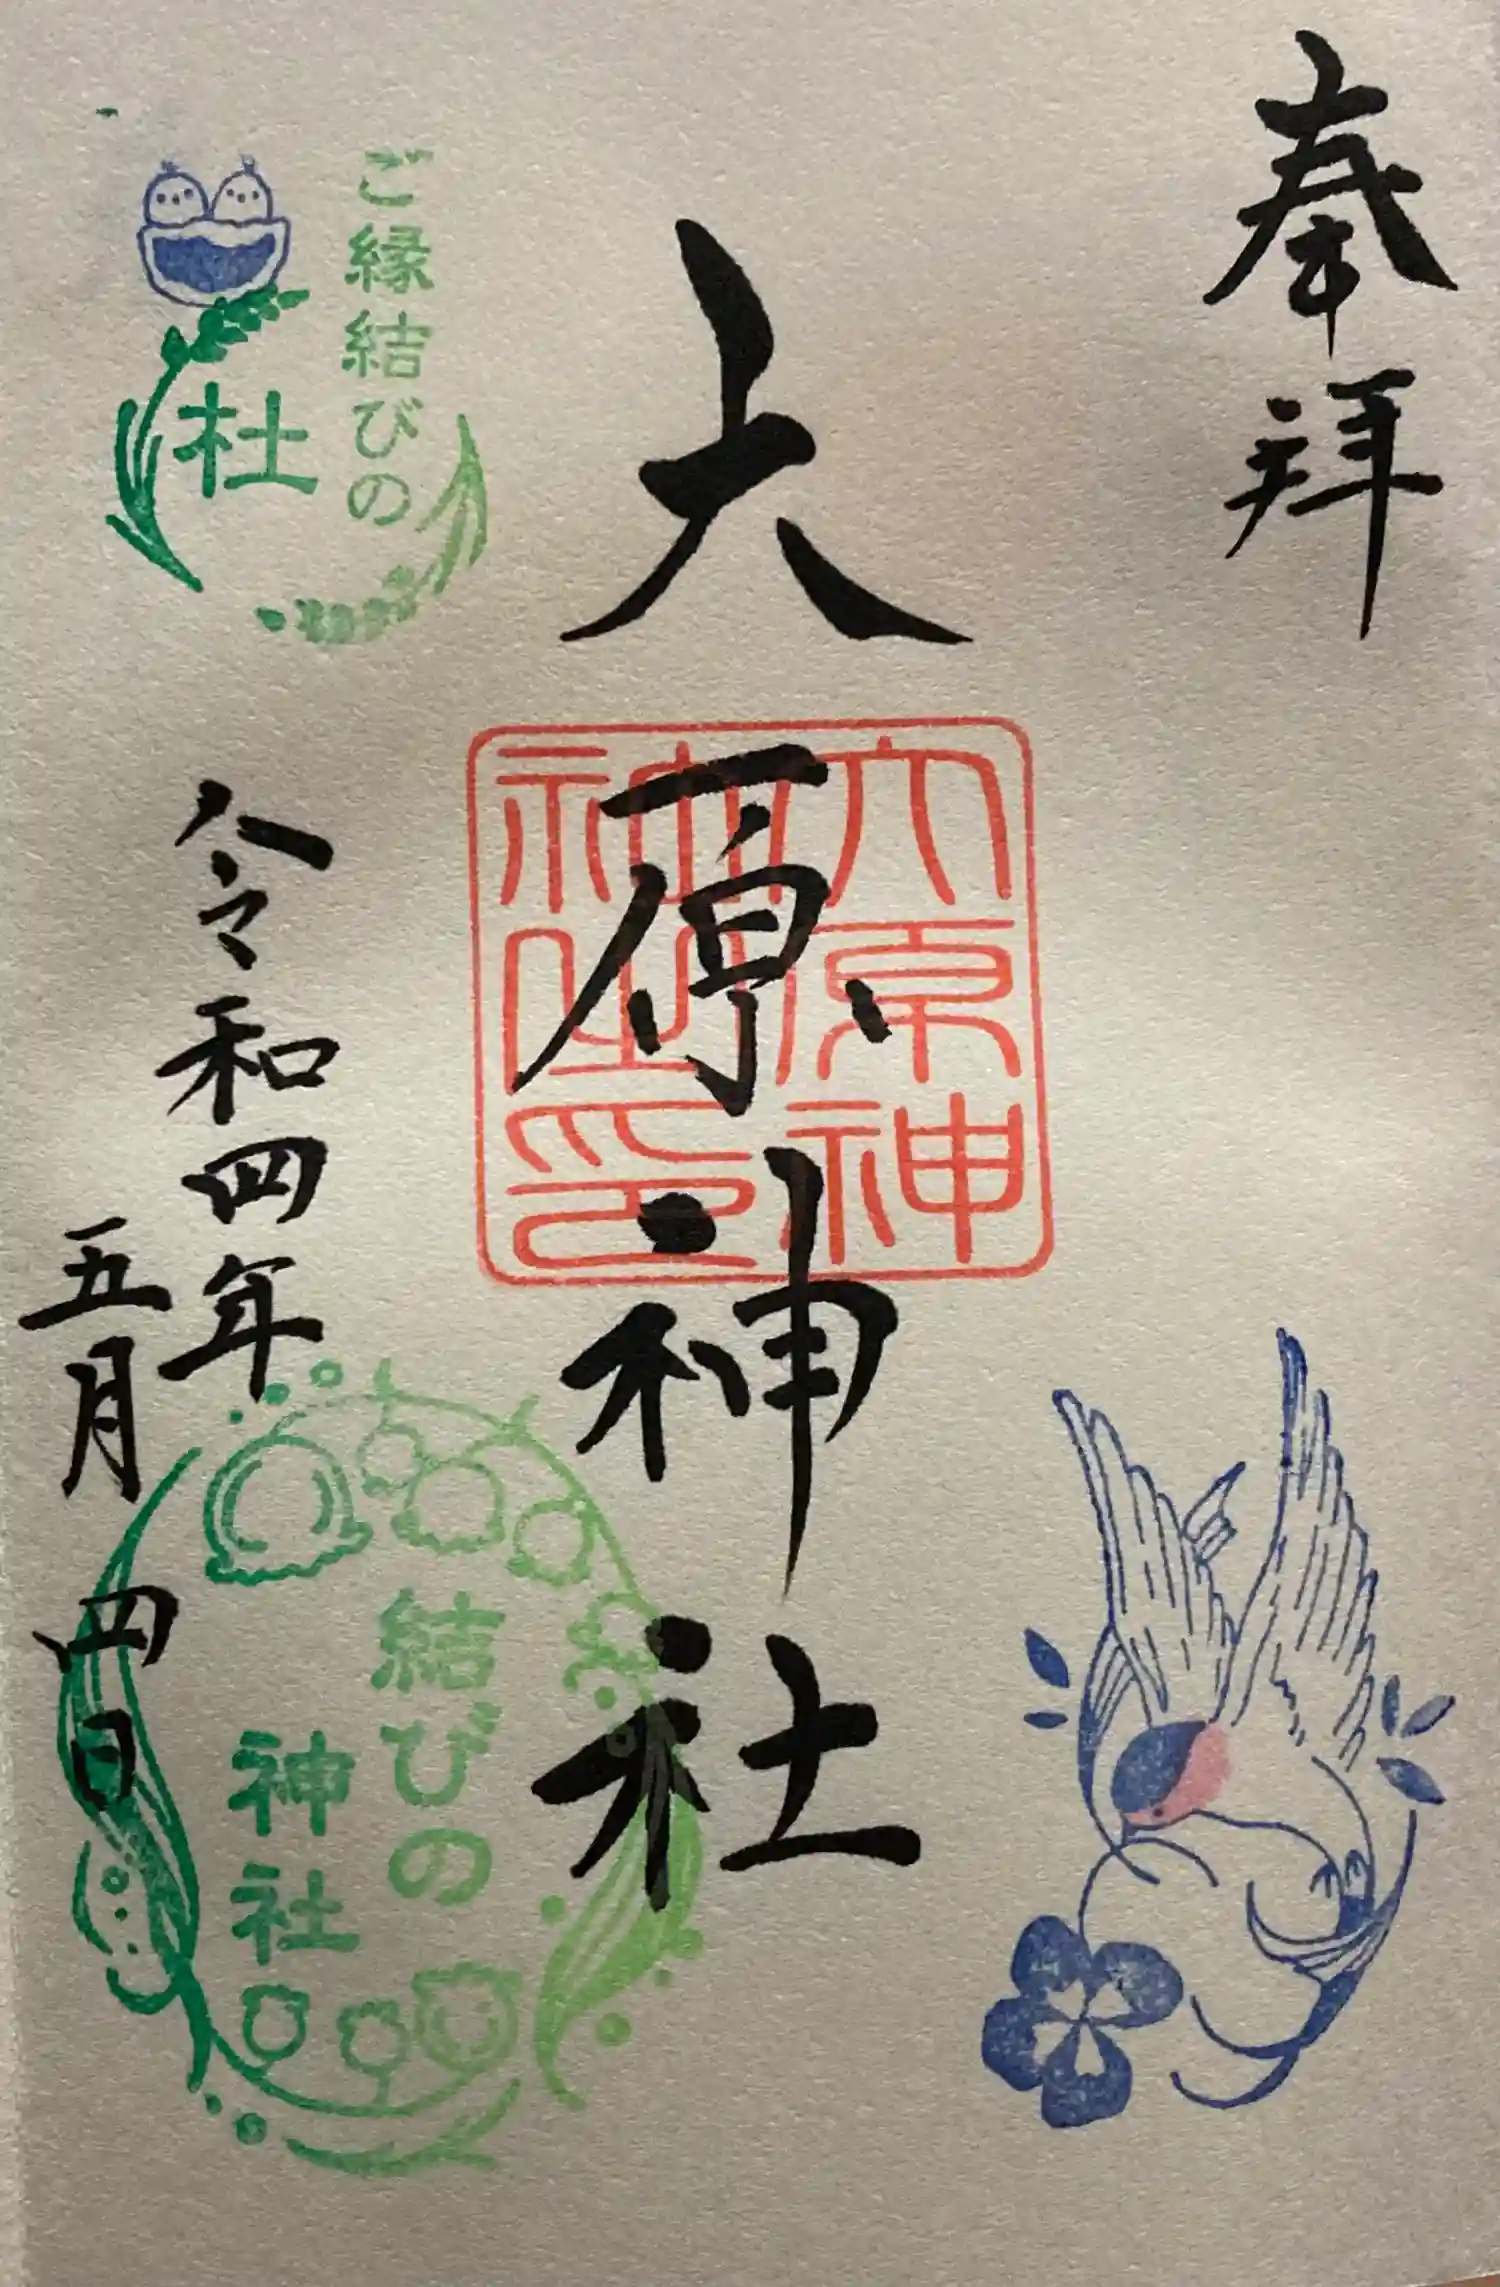 奉拝
大原神社
大原神
社印
ご縁結びの
杜
令和四年
五月四日
結びの
神社